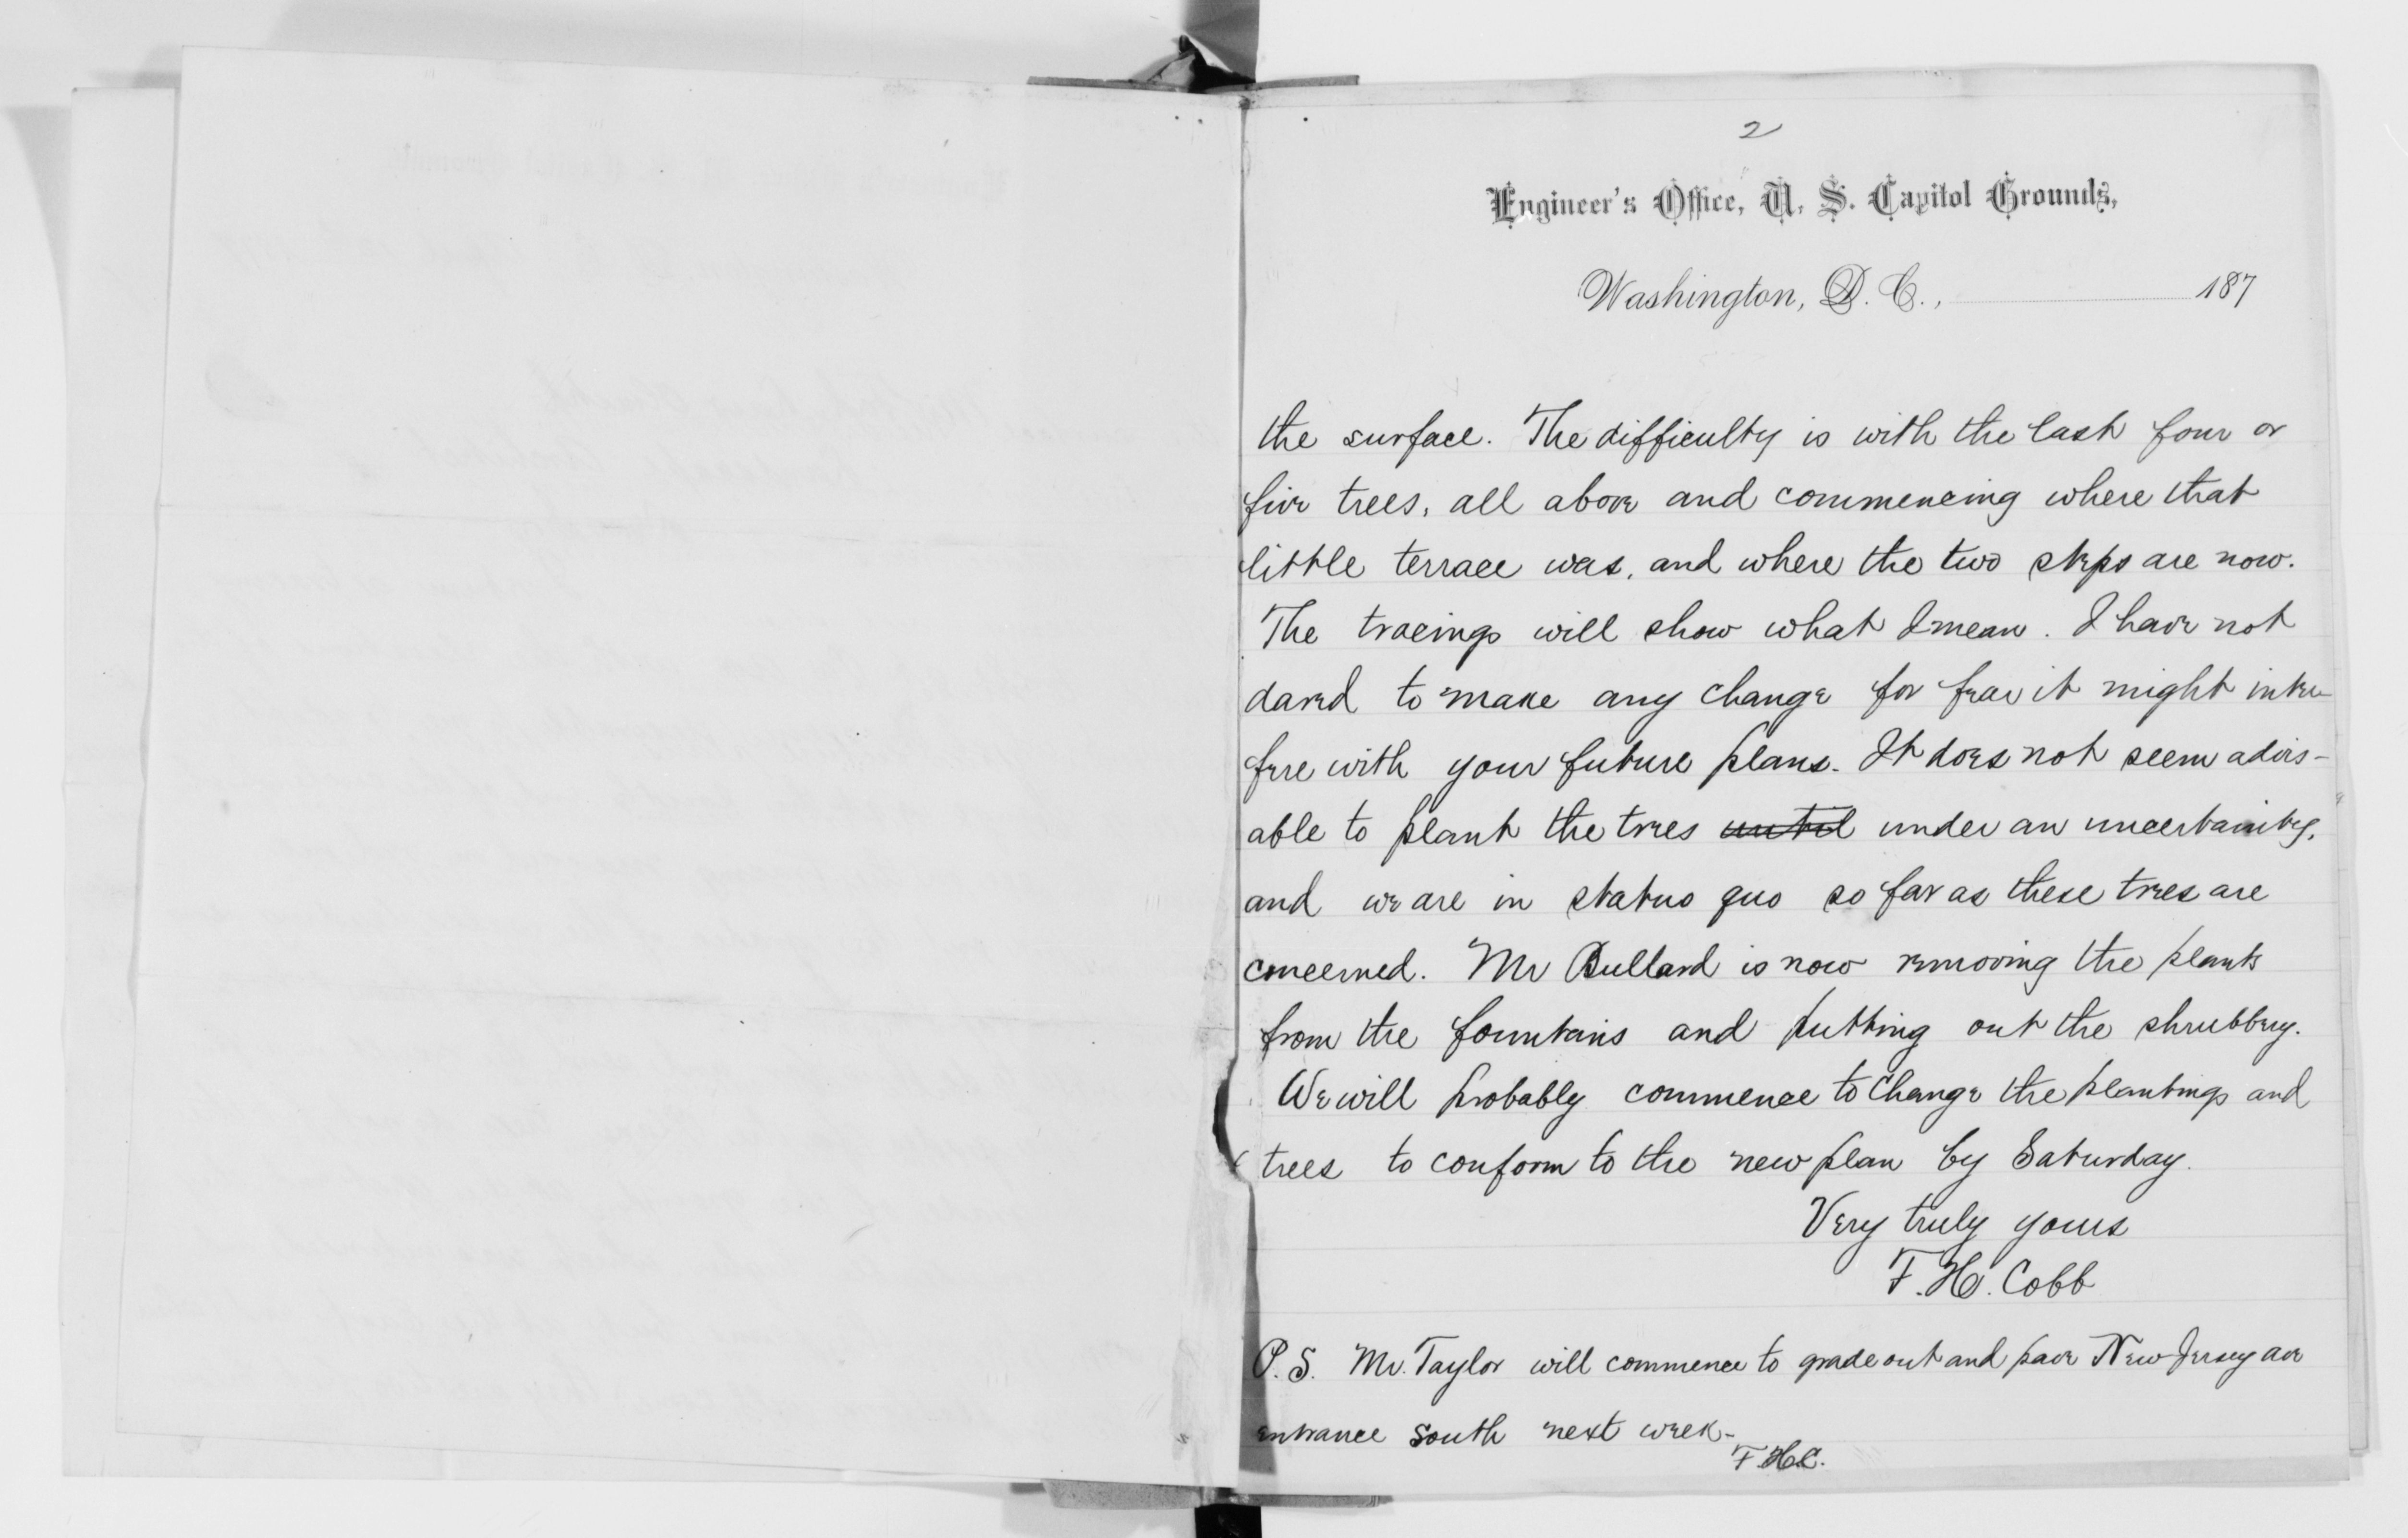 2
Engineer's Office, U. S. Capitol Grounds,
Washington, D. C., 187
the surface. The difficulty is with the last four or
five trees, all above and commencing where that
little terrace was, and where the two steps are now.
The tracings will show what I mean. I have not
dared to make any change for fear it might inter-
fere with your future plans. It does not seem advis-
able to plant the trees until under an uncertainty,
and we are in status quo so far as these trees are
concerned. Mr Bullard is now removing the plants
from the fountains and putting out the shrubbery.
We will probably commence to change the plantings and
trees to conform to the new plan by Saturday.
Very truly yours
F. H. Cobb
P. S. Mr. Taylor will commence to grade out and pave New Jersey ave
entrance south next week-
F.H.C.